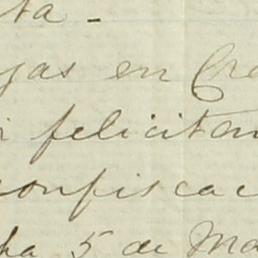 ta -
jas en Cre
i felicitan
confiscac
ha 5 de Ma